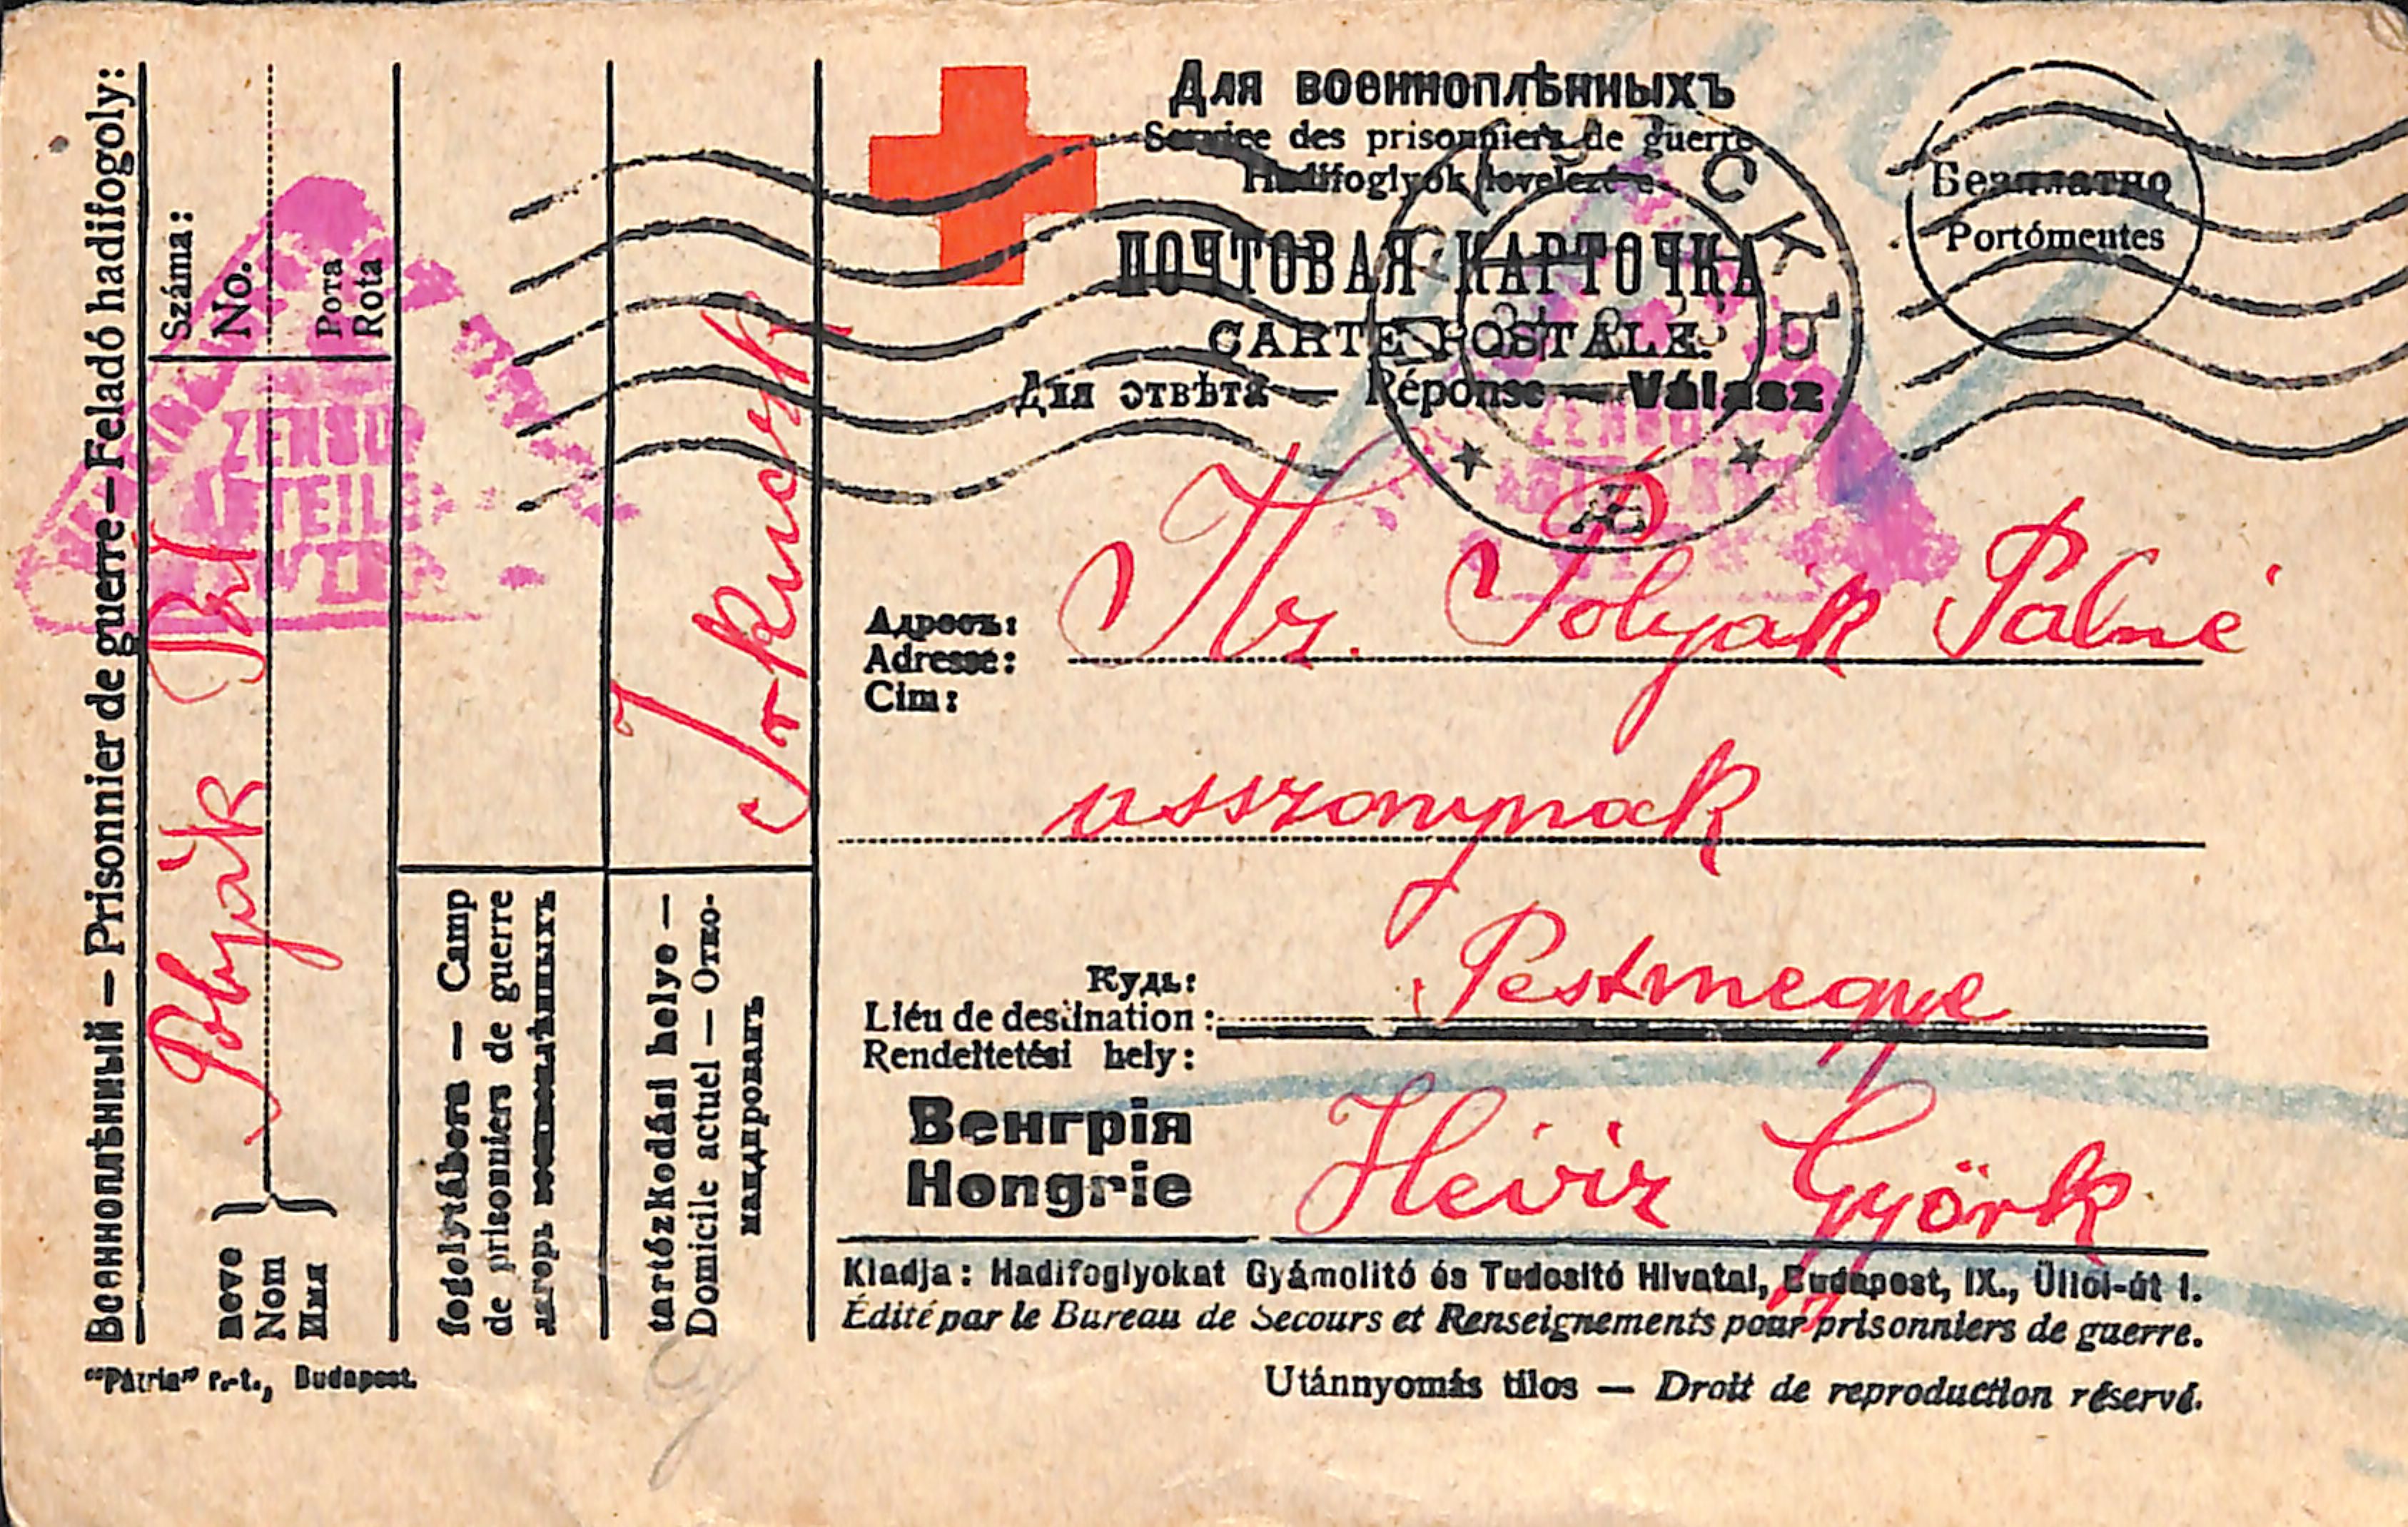 Для военноплѣнныхъ
Service des prisonniers de guerre
Hadifoglyok levelezése
ПОЧТОВАЯ КАРТОЧКА
CARTE POSTALE.
Для отвѣта — Réponse — Válasz
Безплатно
Portómentes
ИРКУТСКЪ
Адресъ:
Adresse:
Cim:
Nr. Polyák Pálné
asszonynak
Кудь:
Liéu de destination:
Rendeltetési hely:
Pestmegye
Венгрія
Hongrie
Heviz Györk
Kiadja: Hadifoglyokat Gyámolitó és Tudositó Hivatal, Budapest, IX., Üllői-út 1.
Édité par le Bureau de Secours et Renseignements pour prisonniers de guerre.
Utánnyomás tilos — Droit de reproduction réservé.
Военноплѣнный — Prisonnier de guerre — Feladó hadifogoly:
Száma:
No.
Рота
Rota
neve
Nom
Имя
Polyák Pál
fogolytábora — Camp
de prisonniers de guerre
лагерь военноплѣнныхъ
tartózkodási helye —
Domicile actuel — Отко-
мандрованъ
Irkuczk
ZENSUR
ABTEILUNG
"Pátria" r.-t., Budapest.